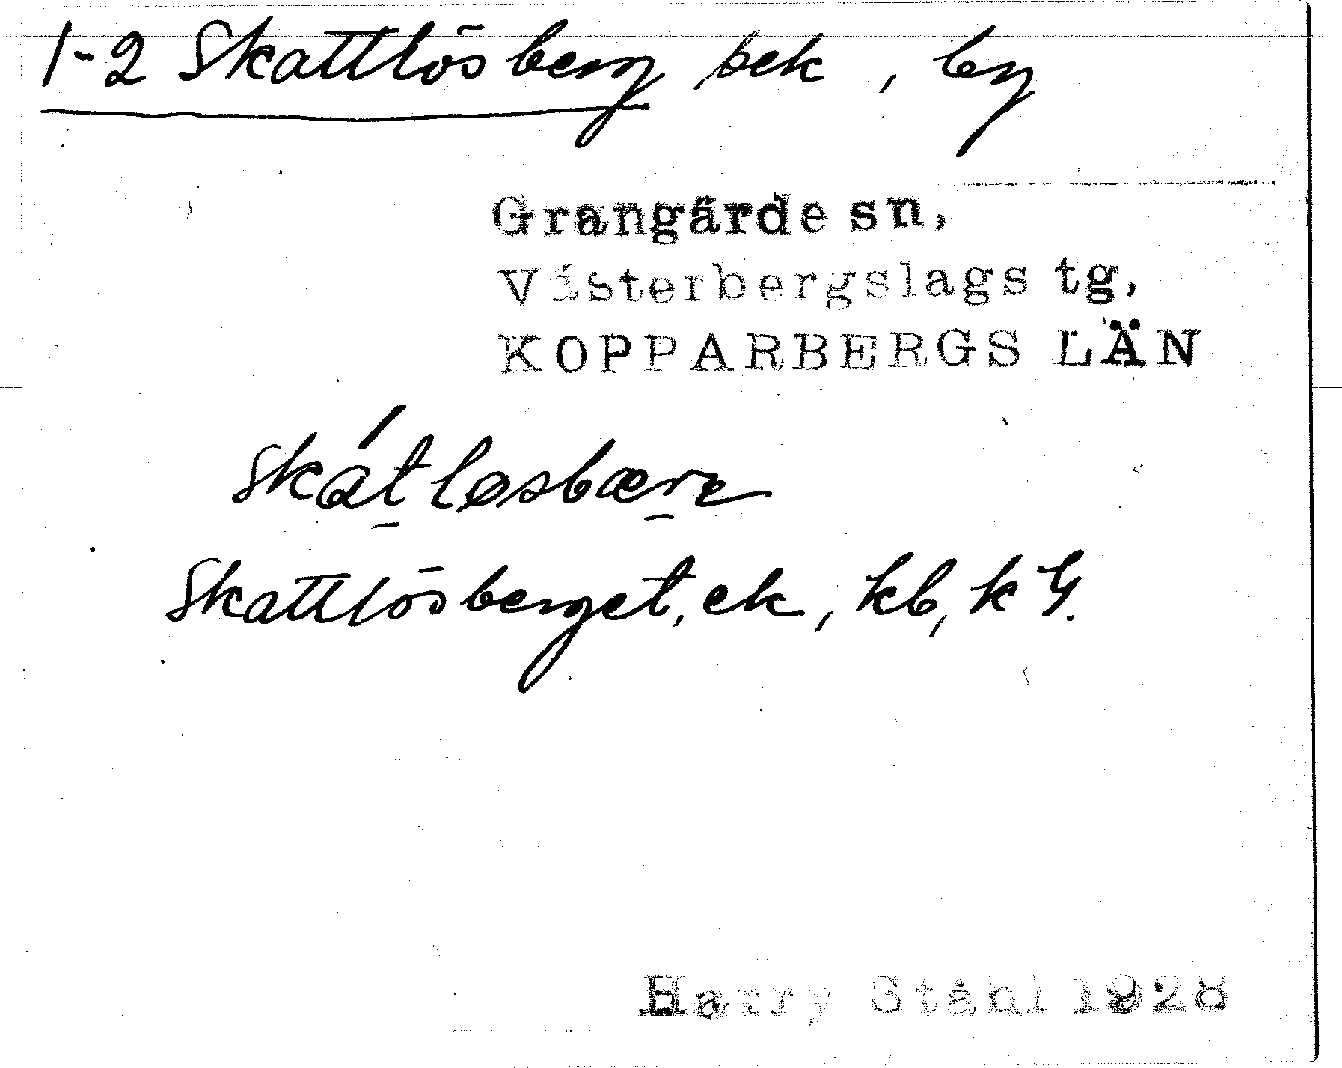 1-2 Skattlösberg sek, by
Grangärde sn,
Västerbergslags tg,
KOPPARBERGS LÄN
skátlɵsbærɛ
Skattlösberget, ek, kb, k G.
Harry Ståhl 1928